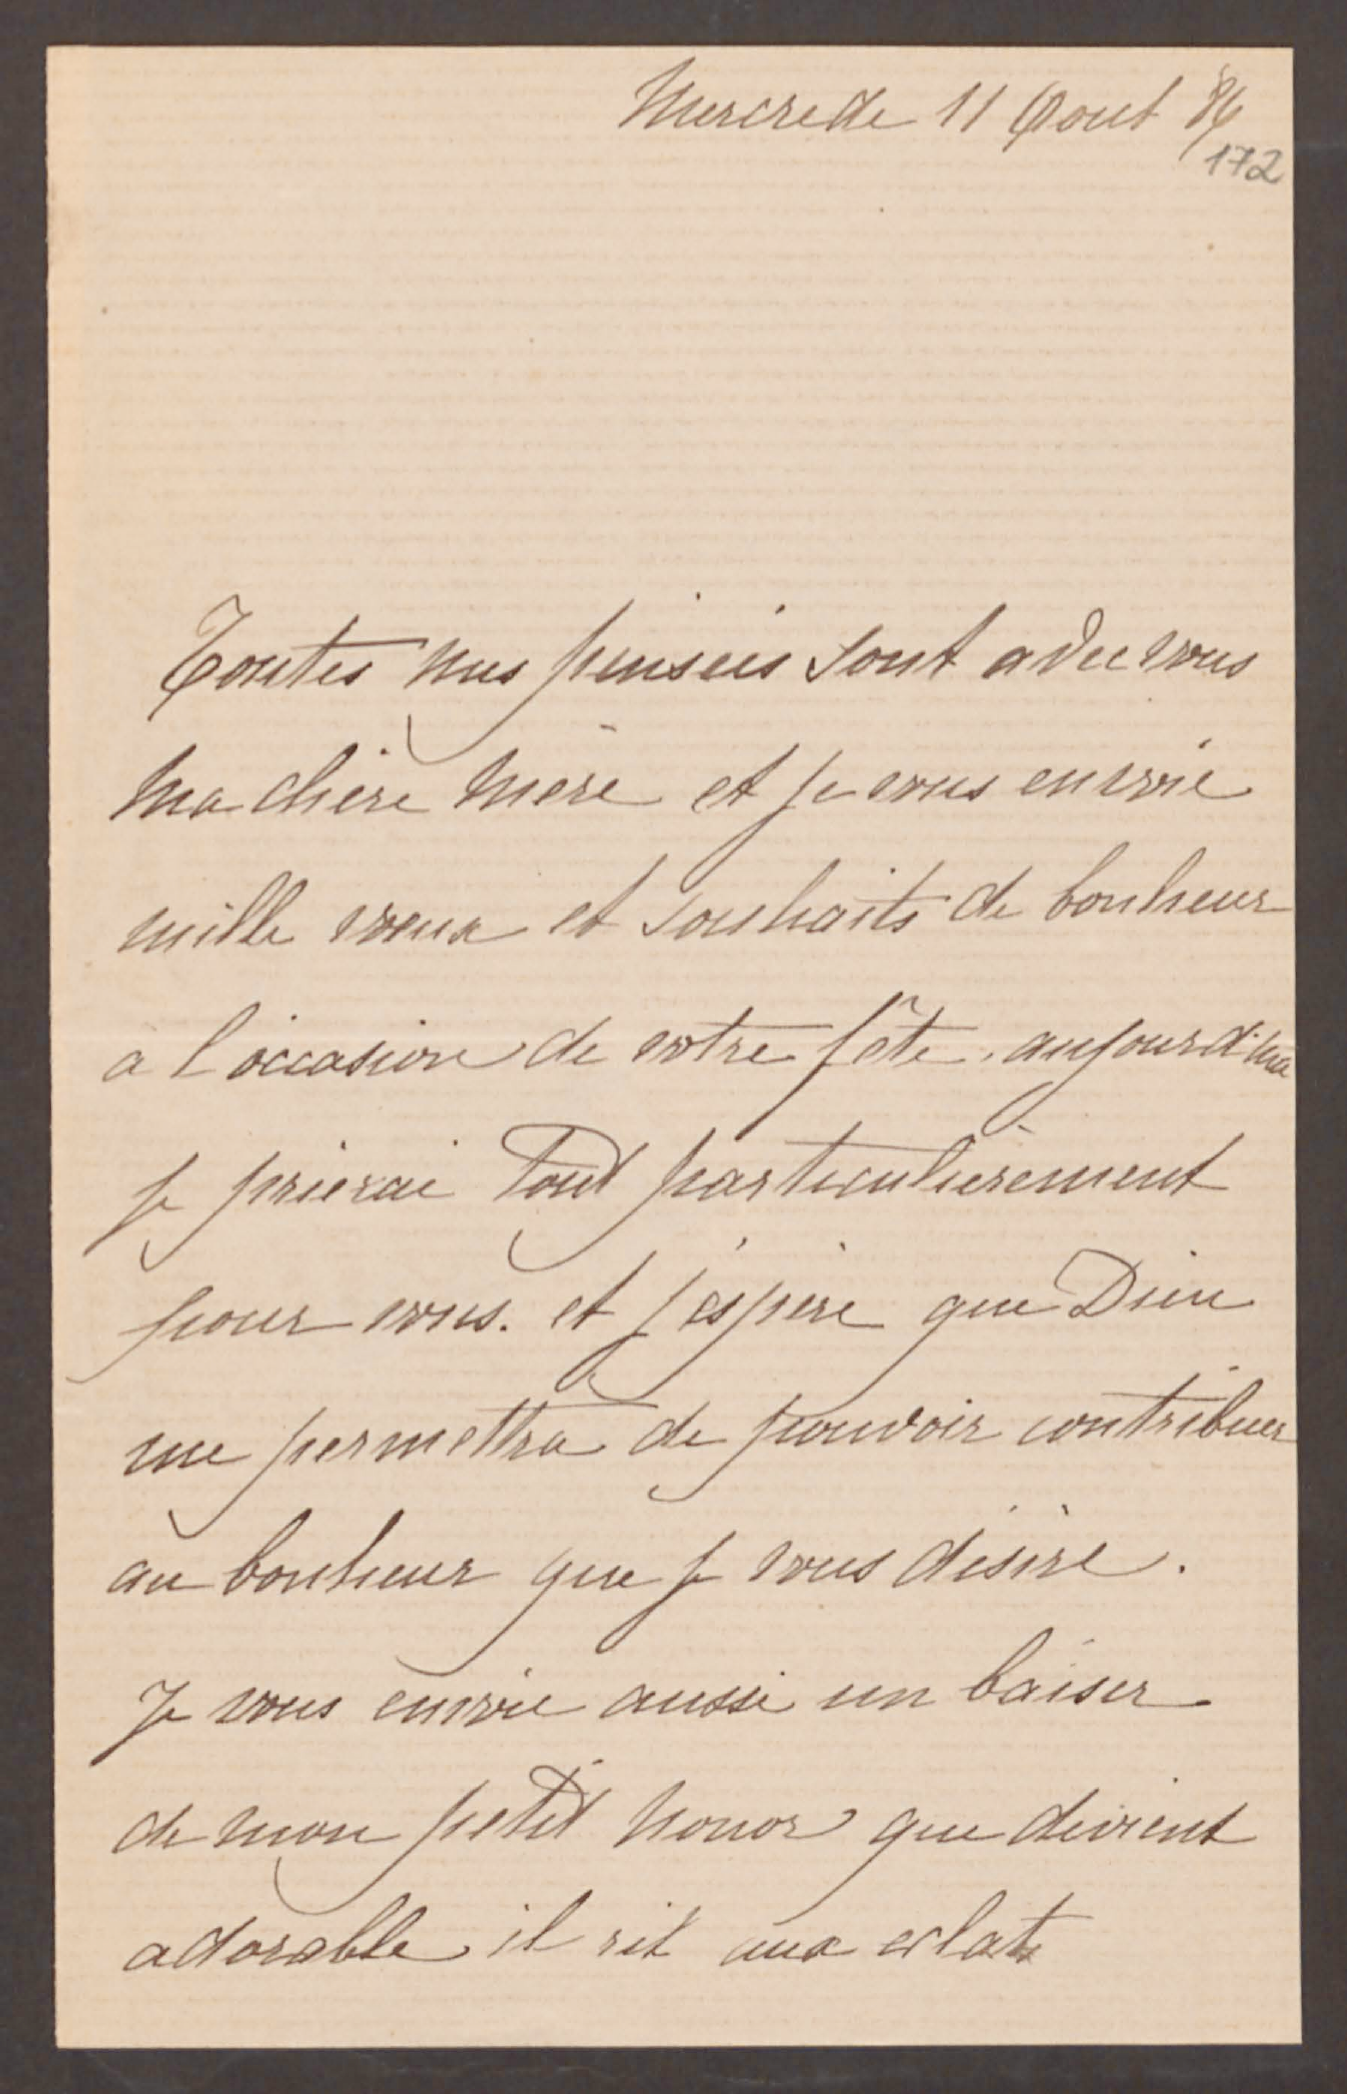 Mercrede 11 Aout 86
172
Toutes mes penseés sont avec vous
ma chère mère et je vous envoie
mille vœux et souhaits de bonheur
a l'occasion de votre fête. aujourd'hui
je prierai tout particulièrement
pour vous. et j'espère que Dieu
me permettra de pouvoir contribuer
au bonheur que je vous désire.
Je vous envoie aussi un baiser
de mon petit Nonor que devient
adorable il rit aux eclats